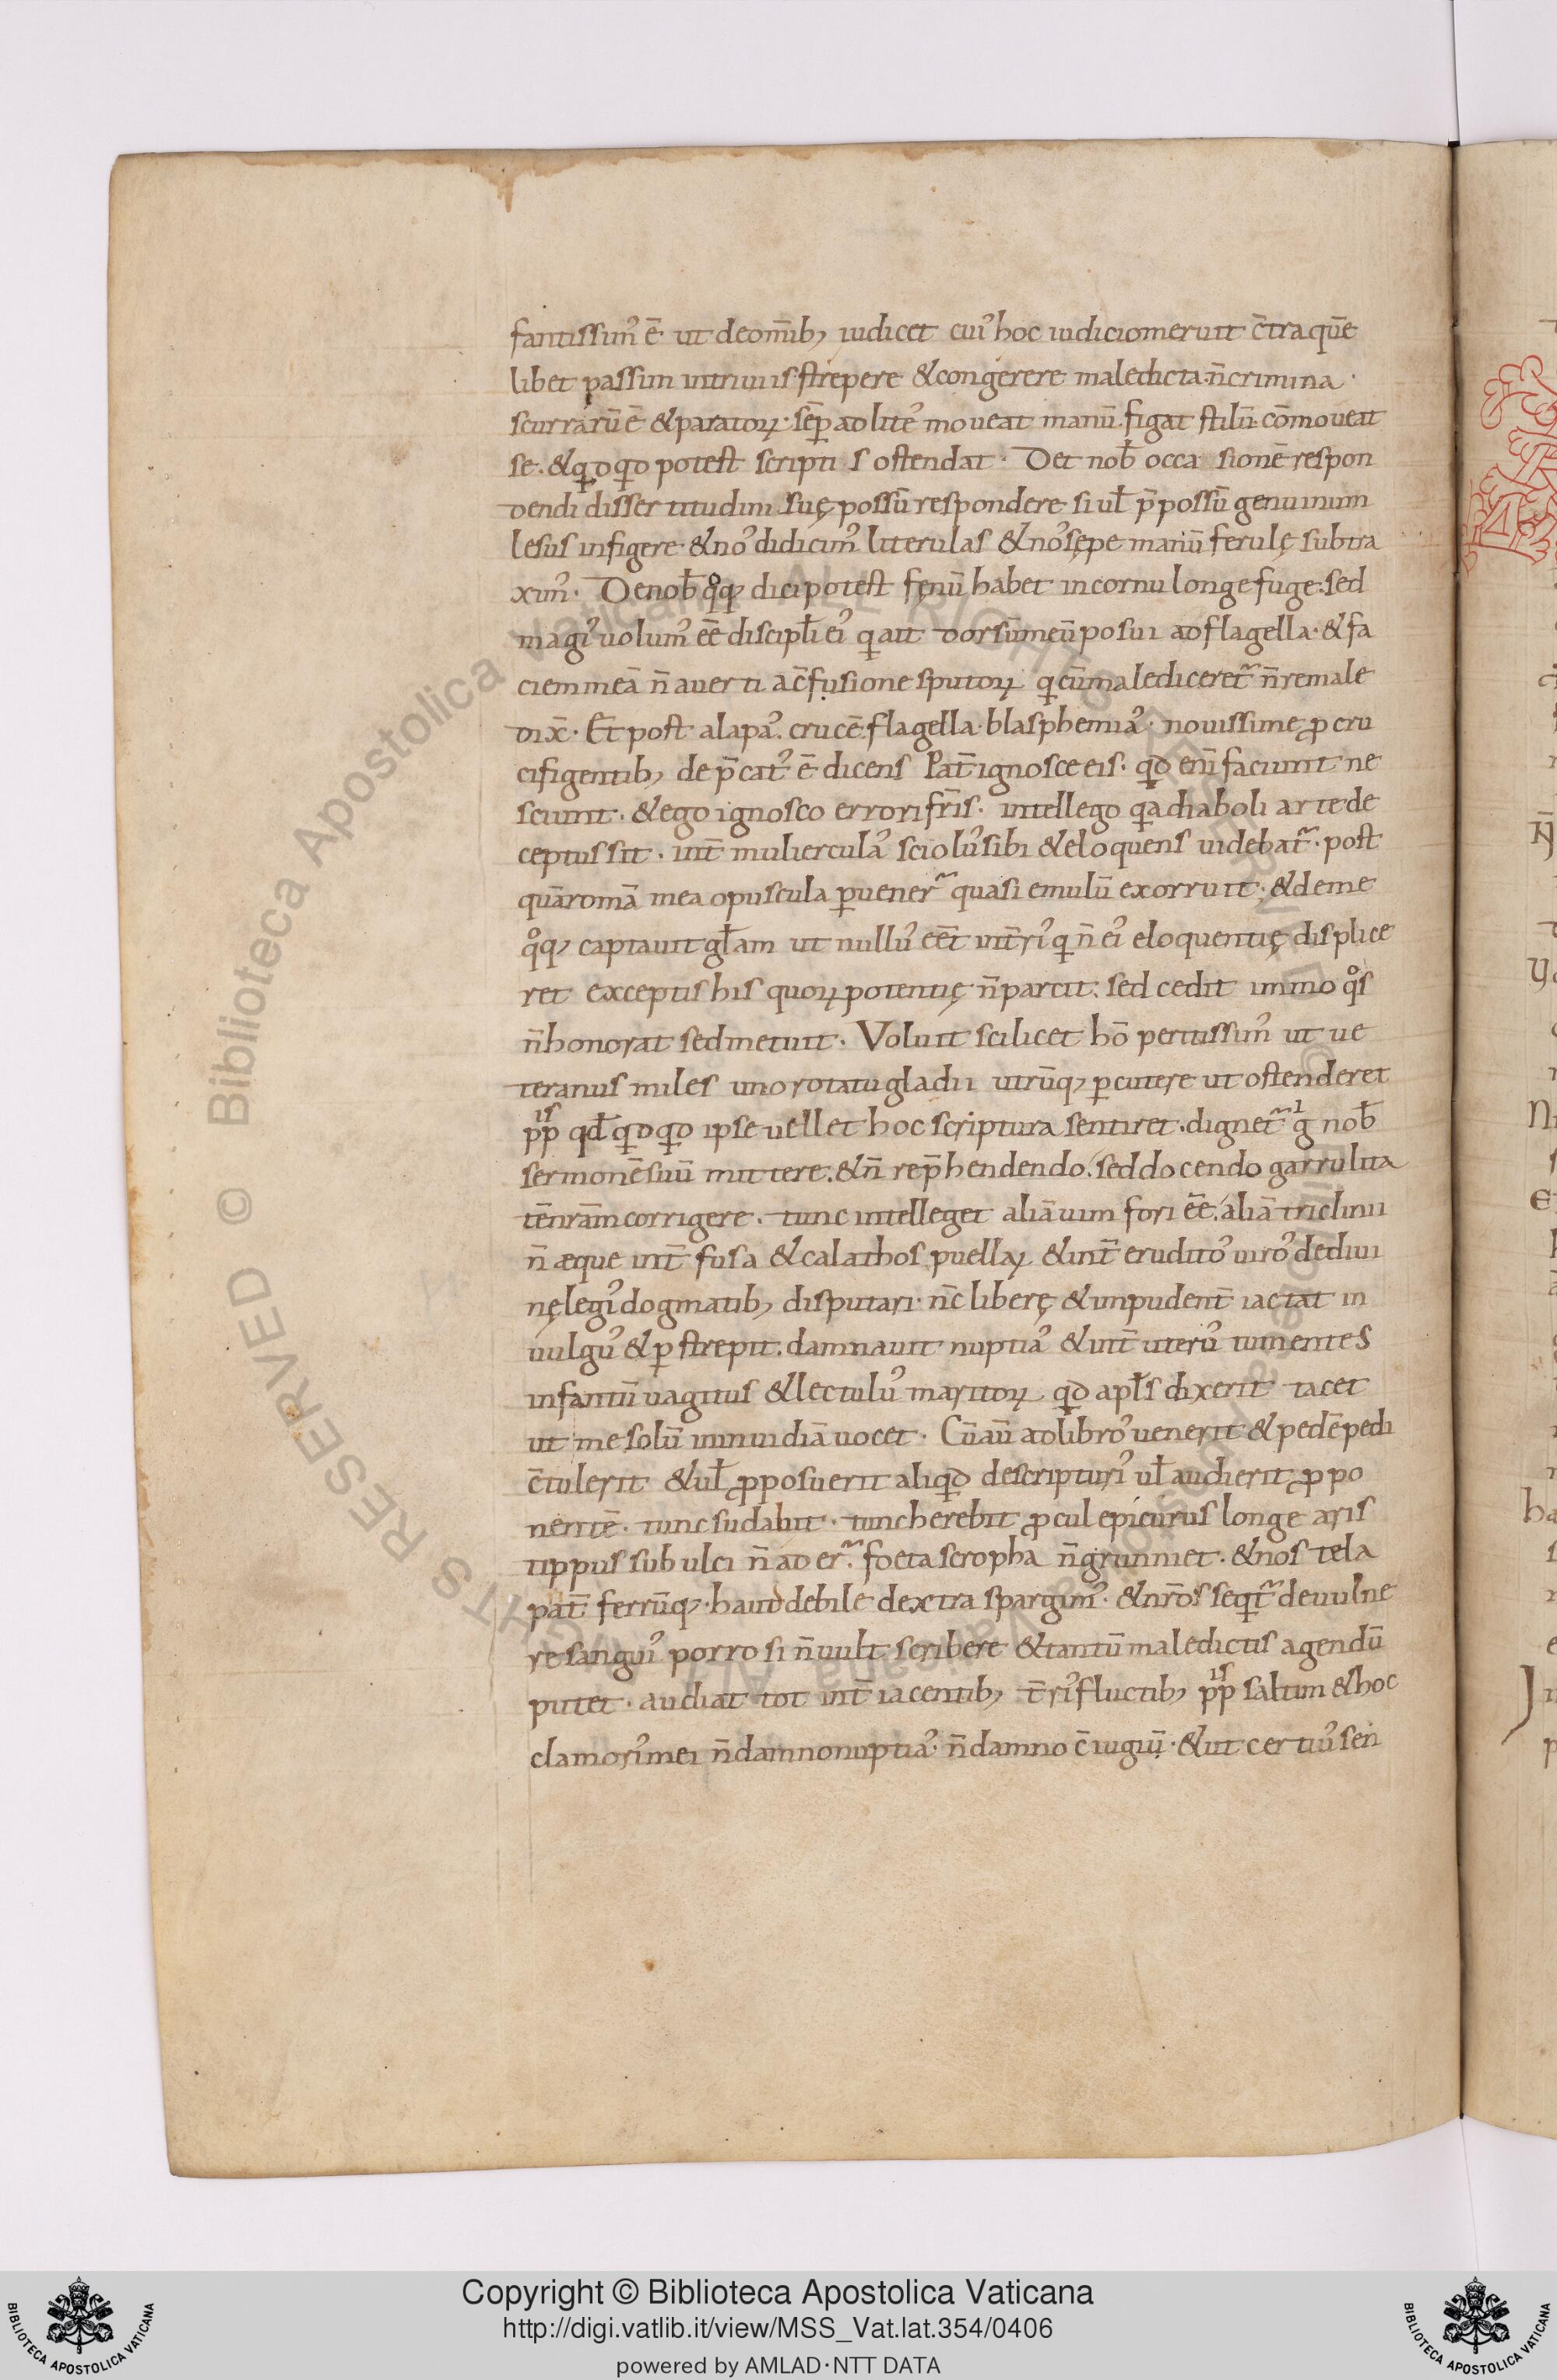 fantissim᾽ ē ut deom̄ib; iudicet cui᾽ hoc iudiciomeruit c̄traquē
libet passim intriuiis·strepere &congerere maledicta·n̄crimina·
scurrarū ē &paratoꝝ·sēꝑ adlite᾽ moueat manū·figat stilū·cōmoueat
se·&qdqd potest scriptis ostendat· Det nob̄ occasionē respon
dendi dissertitudini suę possū respondere si uł p̄possū genuinum
lesus infigere·&no᾽ didicim᾽ literulas &no᾽sępe manū ferulę subtra
xim᾽· Denob̄ qoq; dicipotest fęnū habet incornu longe fuge·sed
magi᾽ uolum᾽ eē discipłi ei᾽ qait dorsūmeūposui adflagella·&fa
ciemmeā n̄auerti ac̄fusione sputoꝝ qcūmalediceret᷑ n̄remale
dix̄· Et post alapa᾽·crucē·flagella·blasphemia᾽·nouissime ꝓcru
cifigentib; de p̄cat᾽ ē dicens Pat̄ignosceeis·qd enī faciunt ne
sciunt·&ego ignosco errorifr̄is· intellego qadiaboli artede
ceptussit·int̄ muliercula᾽ sciolu᾽sibi &eloquens uidebat᷑·post
quāromā mea opuscula ꝑuener᷑ quasi emulū exorruit·&deme
qoq; captauit głam ut nullu᾽ eēt int̄ri᾽ q n̄ ei᾽ eloquentię displice
ret exceptis his quoꝝ potentię n̄parcit·sed cedit immo qos
n̄honorat sedmetuit· Voluit scilicet hō peritissim᾽ ut ue
teranus miles uno rotatugladii utrūq; ꝑcutere ut ostenderet
ppis qđ qdqd ipse uellet hoc scriptura sentiret·dignet᷑ gi nob̄
sermonēsuū mittere·&n̄ rep̄hendendo·seddocendo garrulita
tēnrāmcorrigere·tunc intelleget aliāuim fori eē·aliā triclinii
n̄ æque int̄ fusa &calathos puellaꝝ &int̄ erudito᾽ uiro᾽ dediui
nęlegi᾽dogmatib; disputari·n̄c liberę &impudent̄ iactat in
uulgu᾽ &ꝑstrepit·damnauit nuptia᾽ &int̄ uteru᾽ tumentes
infantū uagitus &lectulu᾽ maritoꝝ qd apłs dixerit tacet
ut me solū ininuidiā uocet· Cūaū adlibro᾽uenerit &pedēpedi
c̄tulerit &uł ꝓposuerit aliqd descripturi᾽ uł audierit ꝓpo
nentē·tunc sudabit·tuncherebit ꝓcul epicurus longe aris
tippus subulci n̄ ad er᷑·foeta scropha n̄grunniet·&nos tela
pat̄ ferrūq;·haud debile dextra spargim᾽·&nr̄os seqt᷑ deuulne
re sangui᾽ porro si n̄uult scribere &tantū maledictis agendū
putet·audiat tot int̄ iacentib; t̄ri᾽fluctib; ppis saltim &hoc
clamori᾽mei n̄damnonuptia᾽·n̄damno c̄iugiū·&ut certiu᾽sen
Copyright © Biblioteca Apostolica Vaticana
http://digi.vatlib.it/view/MSS_Vat.lat.354/0406
powered by AMLAD·NTT DATA
BIBLIOTECA APOSTOLICA VATICANA
BIBLIOTECA APOSTOLICA VATICANA